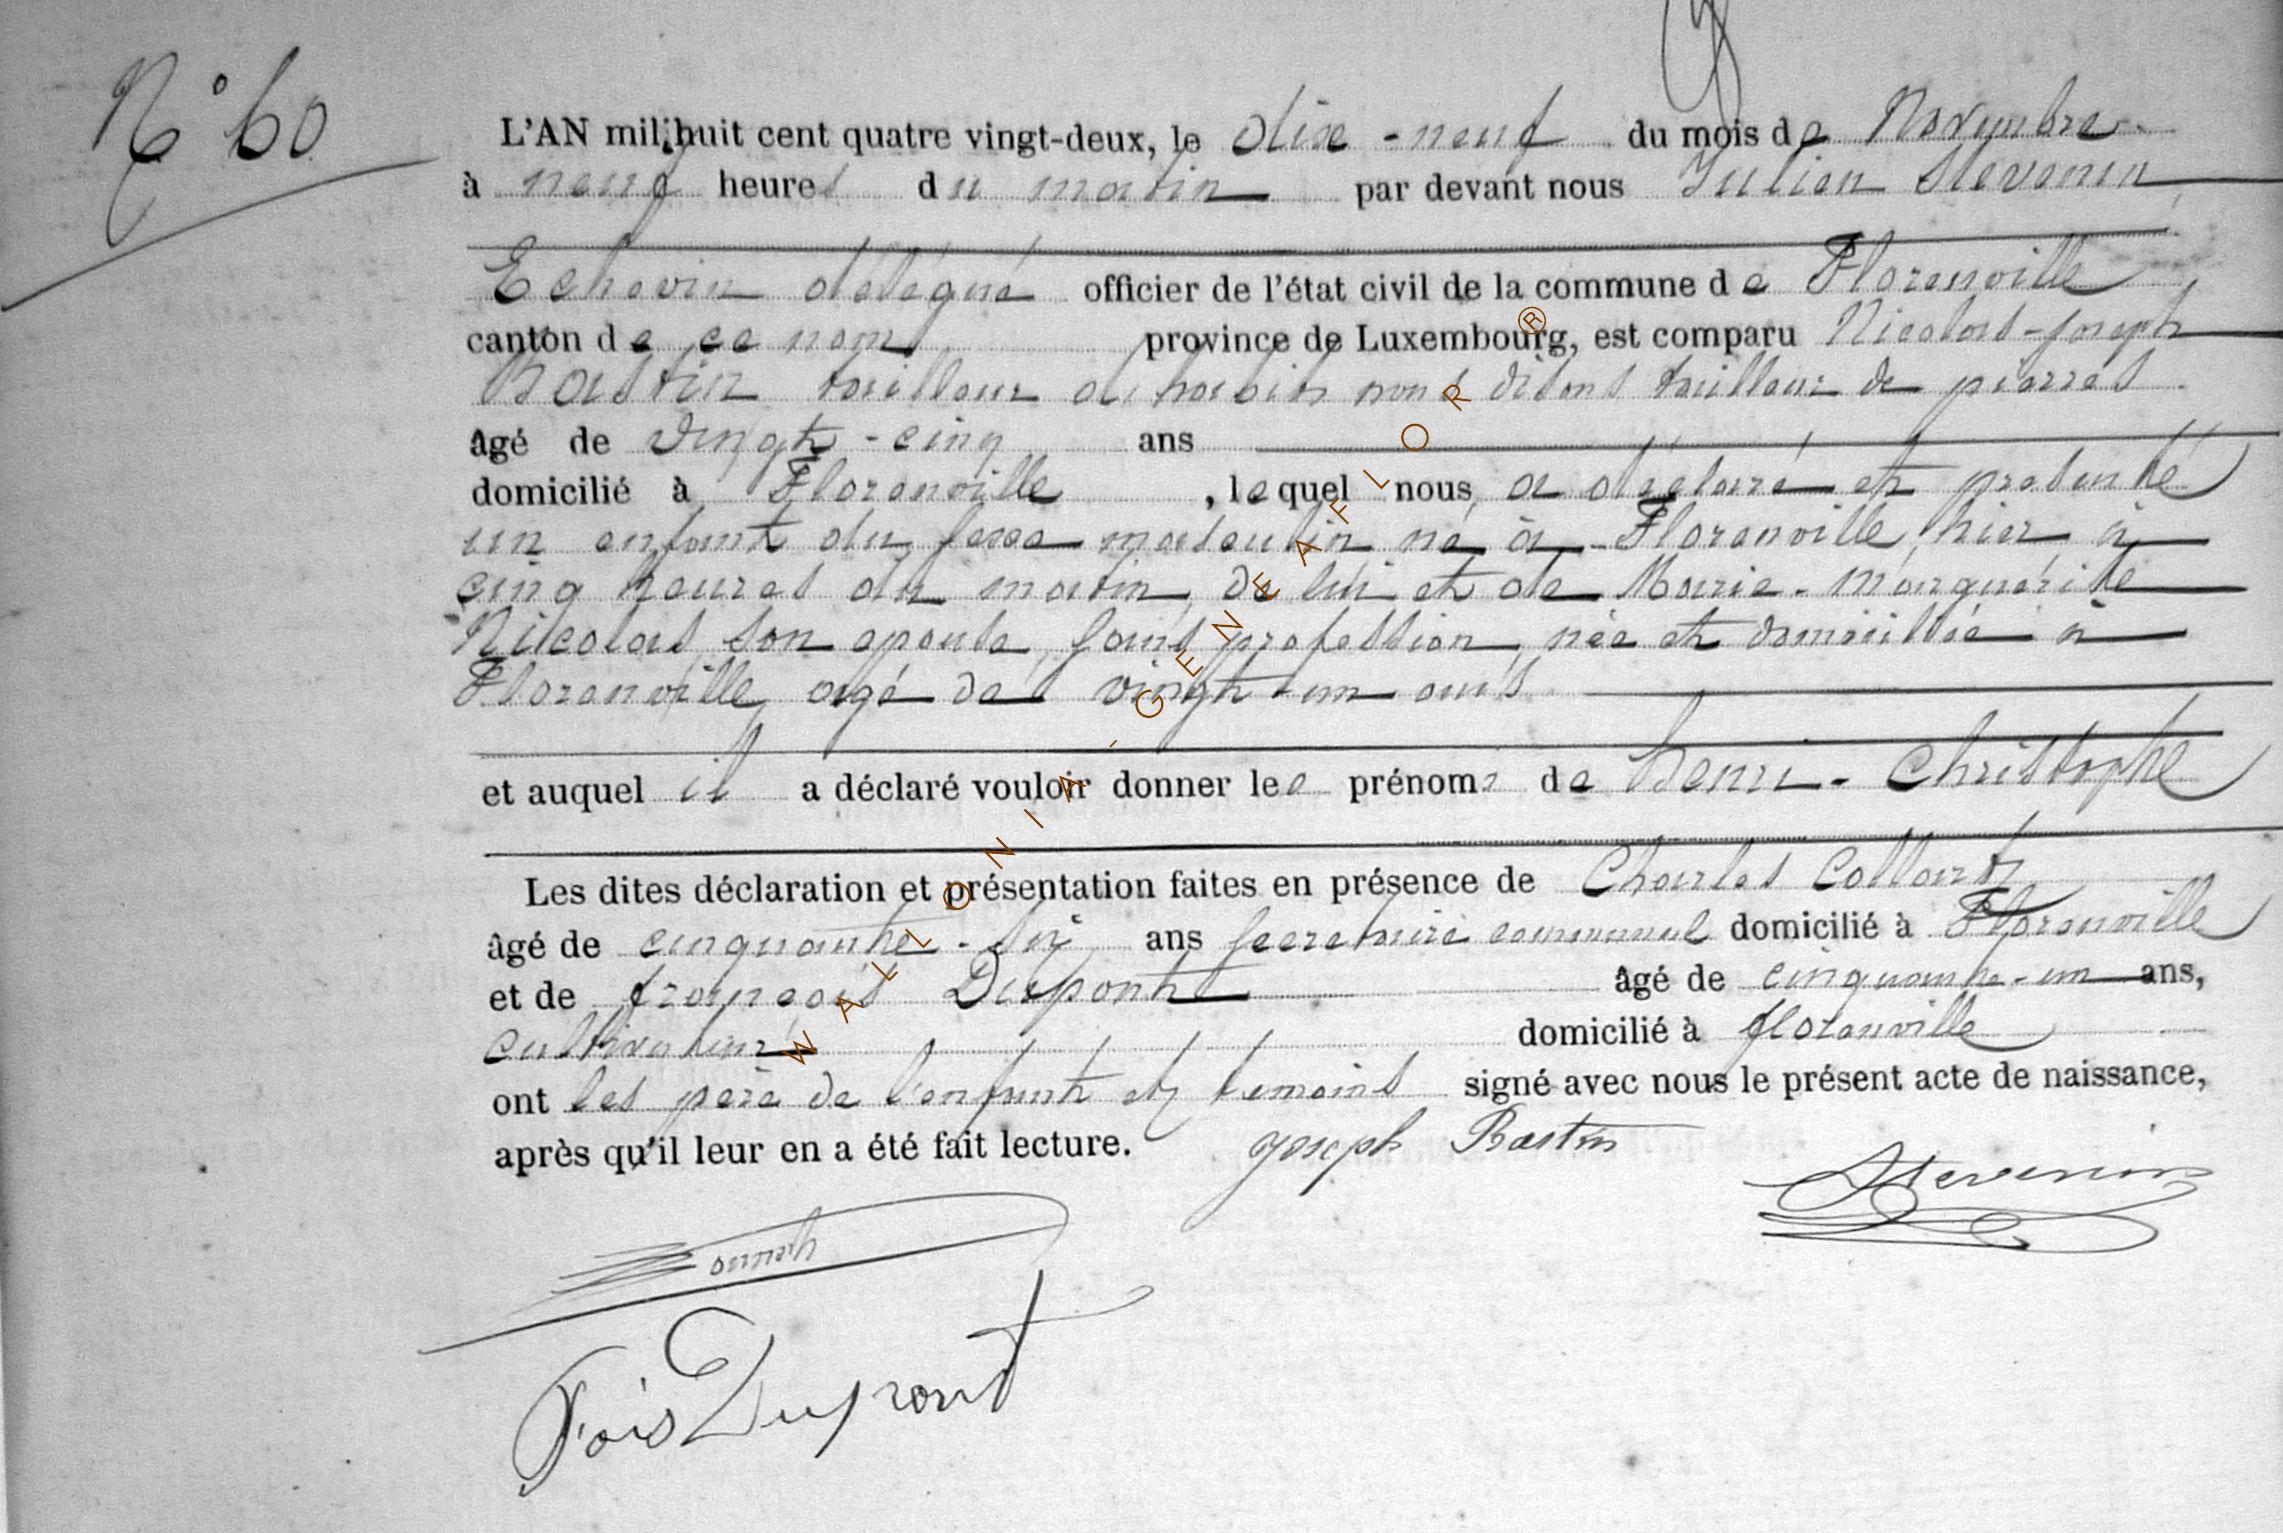 N° 60
L'AN mil huit cent quatre vingt-deux, le dixe-neuf du mois de Novembre
à neuf heures du matin par devant nous Julien Stevenin
Echevin délégué officier de l'état civil de la commune de Florenville
canton de ce nom province de Luxembourg, est comparu Nicolas-Joseph
Bastin tailleur d'habits nous disons tailleur de pierres
âgé de vingt-cinq ans
domicilié à Florenville, lequel nous a déclaré et présenté
un enfant du sexe masculin né à Florenville, hier à
cinq heures du matin, de lui et de Marie-Marguerite
Nicolas, son épouse, sans profession, née et domiciliée à
Florenville, agé de vingt-un ans
et auquel il a déclaré vouloir donner le prénoms de Henri-Christophe
Les dites déclaration et présentation faites en présence de Charles Collart
âgé de cinquante-six ans secretaire communal domicilié à Florenville
et de françois Dupont âgé de cinquante-un ans,
cultivateur domicilié à florenville
ont les père de l'enfant et temoins signé avec nous le présent acte de naissance,
après qu'il leur en a été fait lecture. Joseph Bastin
Stevenin
Fois Dupont
WALLONIA - GENEAFLOR ®